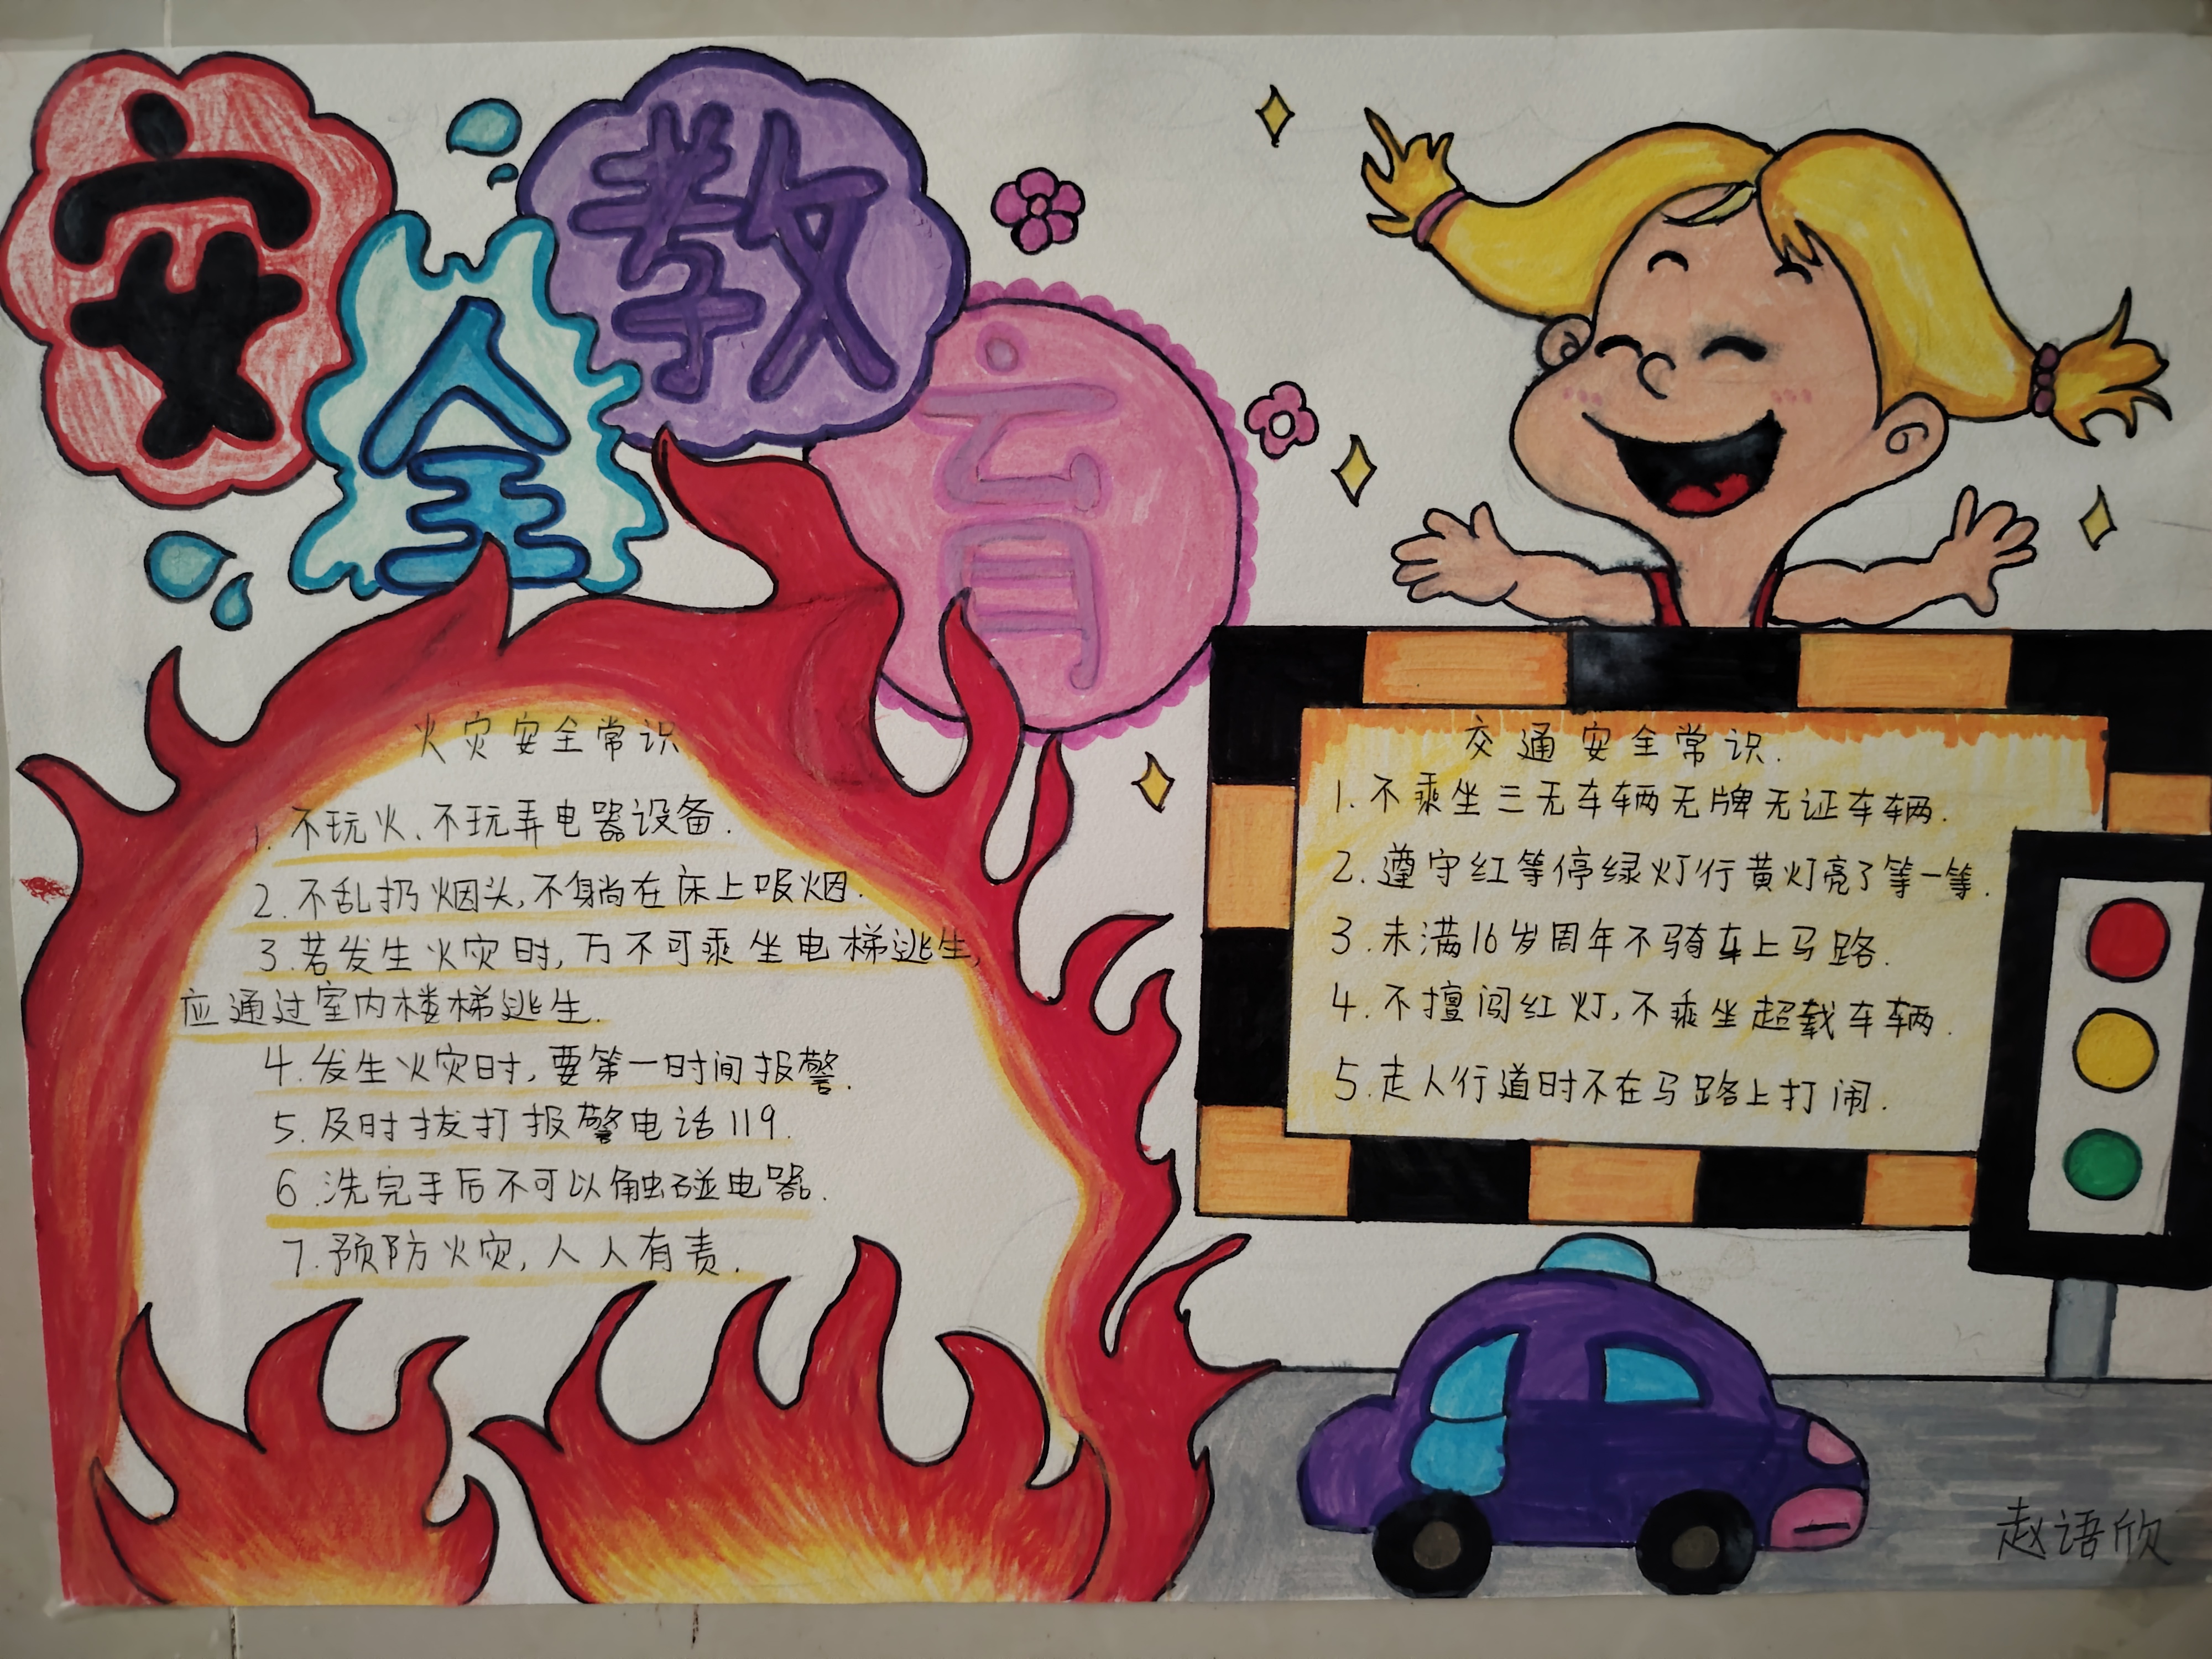 安全教育
火灾安全常识
1. 不玩火、不玩弄电器设备.
2. 不乱扔烟头,不躺在床上吸烟.
3. 若发生火灾时,万不可乘坐电梯逃生,
应通过室内楼梯逃生.
4. 发生火灾时,要第一时间报警.
5. 及时拔打报警电话119.
6. 洗完手后不可以触碰电器.
7. 预防火灾,人人有责.
交通安全常识.
1. 不乘坐三无车辆无牌无证车辆.
2. 遵守红等停绿灯行黄灯亮了等一等.
3. 未满16岁周年不骑车上马路.
4. 不擅闯红灯,不乘坐超载车辆.
5. 走人行道时不在马路上打闹.
赵语欣